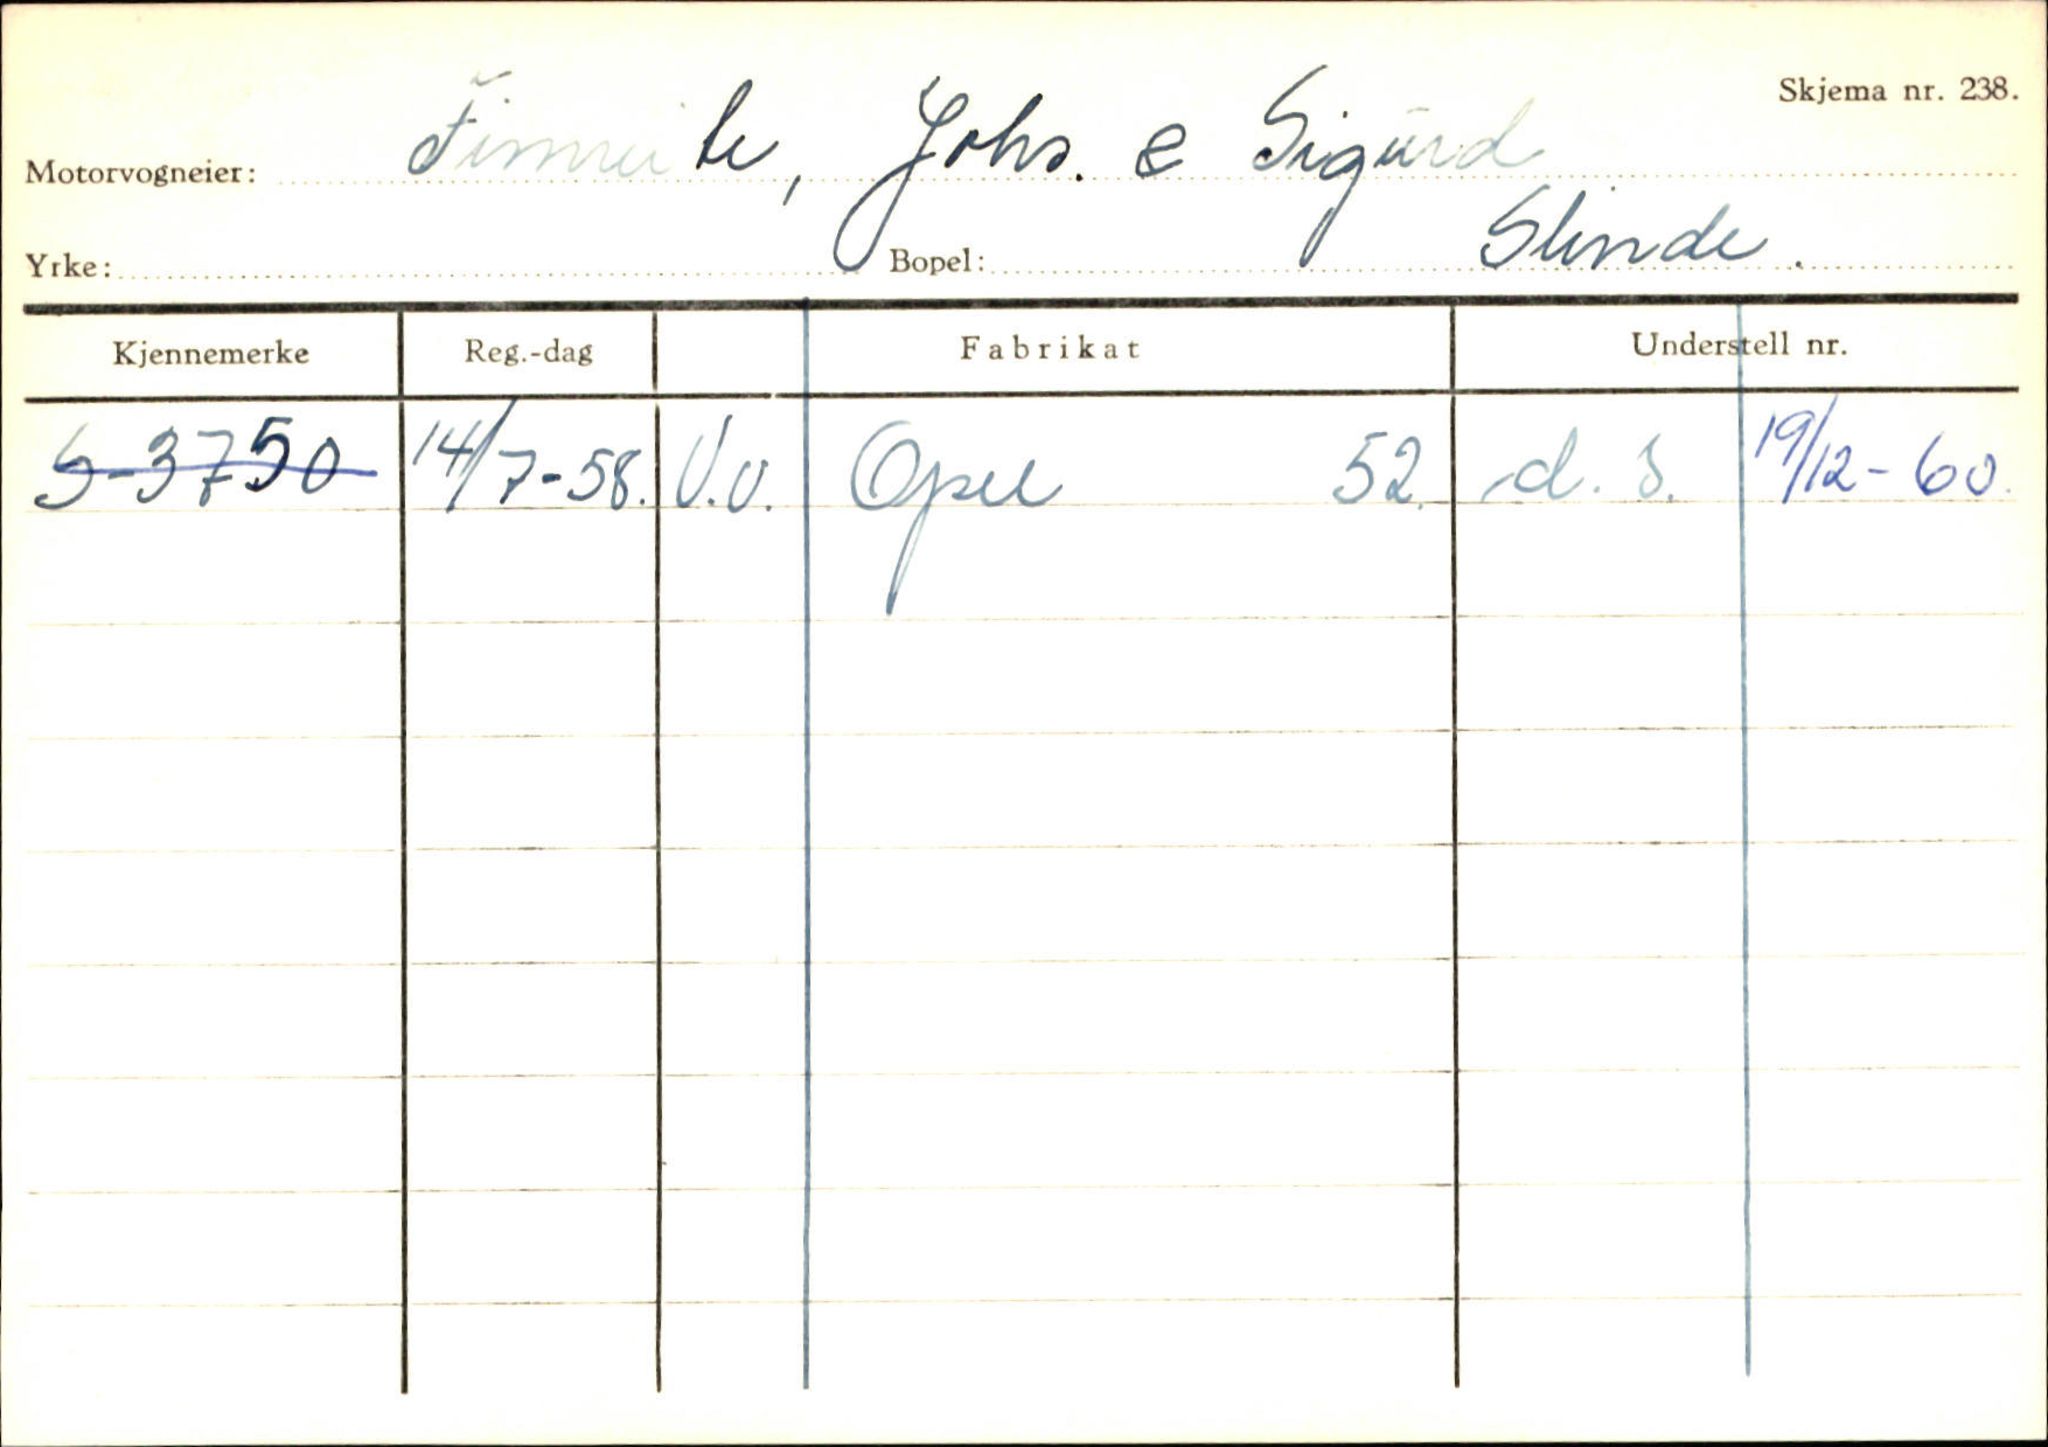 Skjema nr. 238.
Motorvogneier: Fimreite, Johs. & Sigurd
Yrke: Bopel: Slinde.
Kjennemerke Reg.-dag Fabrikat Understell nr.
S-3750 14/7-58. V.v. Opel 52. d. s. 19/12-60.